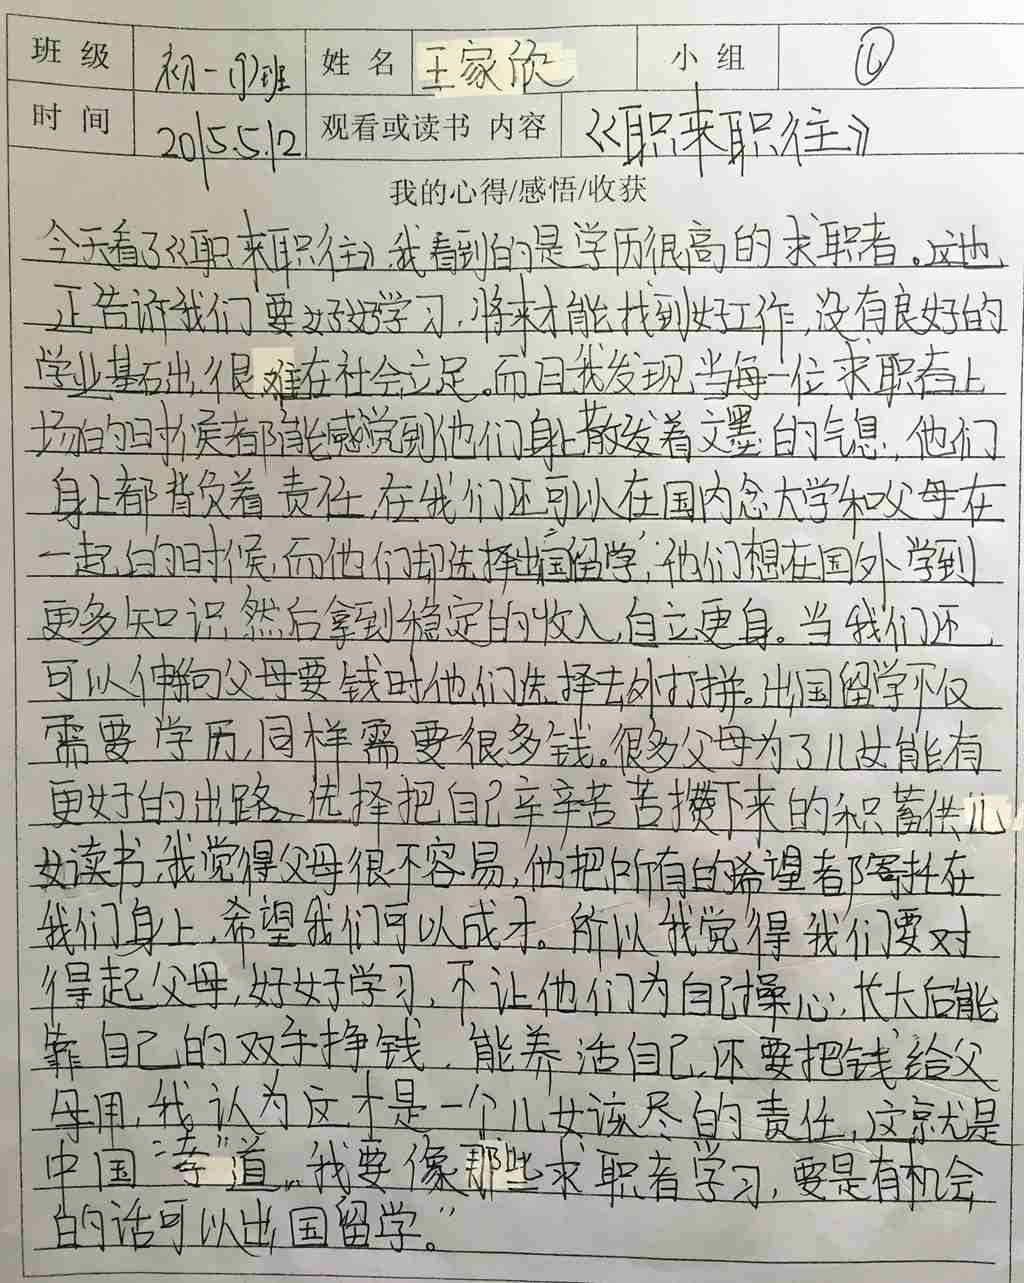 班级 初一(9)班 姓名 王家欣 小组
时间 2015.5.12 观看或读书 内容 《职来职往》
我的心得/感悟/收获
今天看了《职来职往》,我看到的是学历很高的求职者。这也
正告诉我们要好好学习,将来才能找到好工作,没有良好的
学业基础,很难在社会立足。而且我发现,当每一位求职者上
场的时候都能感觉到他们身上散发着文墨的气息,他们
身上都背负着责任,在我们还可以在国内念大学和父母在
一起的时候,而他们却选择出国留学,他们想在国外学到
更多知识,然后拿到稳定的收入,自立更身。当我们还
可以伸手向父母要钱时,他们选择去外打拼。出国留学不仅
需要学历,同样需要很多钱。很多父母为了儿女能有
更好的出路、选择把自己辛辛苦苦攒下来的积蓄供儿
女读书,我觉得父母很不容易,他把所有的希望都寄托在
我们身上,希望我们可以成才。所以我觉得我们要对
得起父母,好好学习,不让他们为自己操心,长大后能
靠自己的双手挣钱,能养活自己,还要把钱给父
母用,我认为这才是一个儿女该尽的责任,这就是
中国“孝”道,我要像那些求职者学习,要是有机会
的话可以出国留学。”